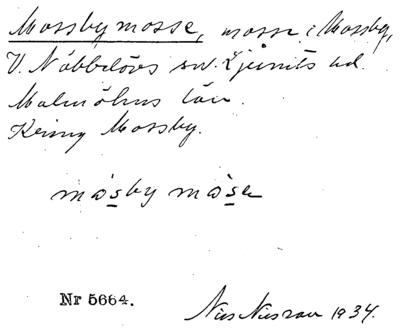 Mossbymosse, mosse i Mossby,
V. Nöbbelövs sn. Ljunits hd.
Malmöhus län.
Kring Mossby.
måsby måse
Nr 5664.
Nils Nilsson 1934.